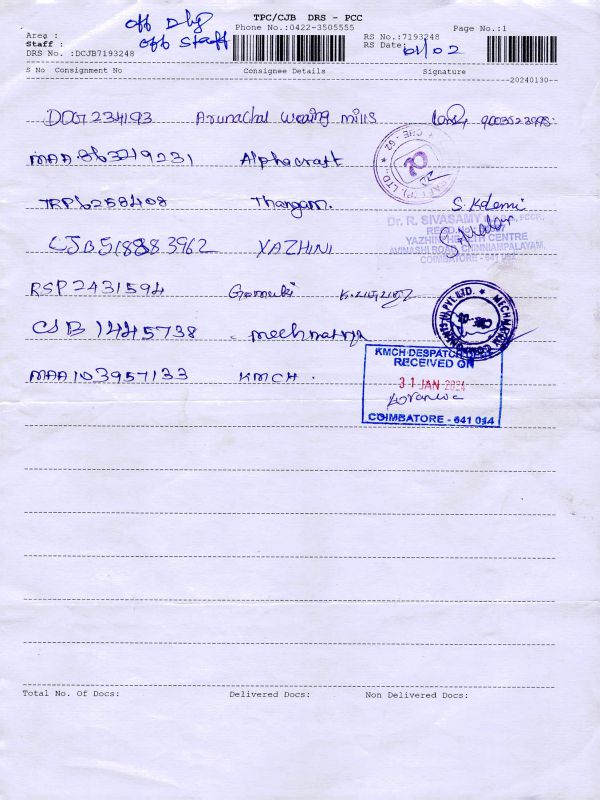 off Dly
TPC/CJB DRS - PCC
Phone No.:0422-3505555
Page No.:1
Area :
Staff : off Staff
RS No.:7193248
RS Date: 01/02
DRS No. :DCJB7193248
S No Consignment No Consignee Details Signature
20240130
DOG234193 Arunachal weaing mills 9003523998
MAA863219231 Alphacraft
TRP6258408 Thangam.
Dr. R. SIVASAMY
YAZHINI HEALTH CENTRE
AVINASHI ROAD, CHINNIAMPALAYAM,
COIMBATORE - 641 062
CJB518883962 YAZHINI
RSP2431594 Gomuki
CJB 1445738
MAA103957133 KMCH.
KMCH DESPATCH
RECEIVED ON
31 JAN 2024
COIMBATORE - 641 014
Total No. Of Docs: Delivered Docs: Non Delivered Docs: